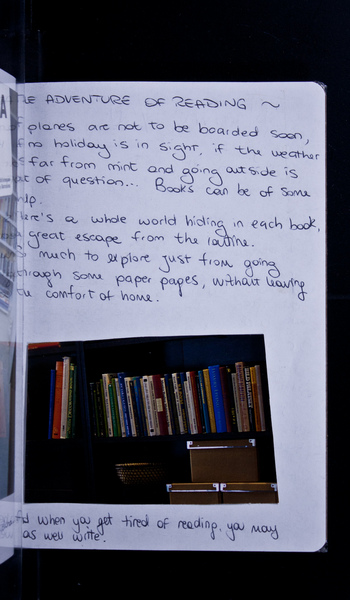 THE ADVENTURE OF READING ~
If planes are not to be boarded soon,
if no holiday is in sight, if the weather
is far from mint and going outside is
out of question... Books can be of some
help.
There's a whole world hiding in each book,
great escape from the routine.
So much to explore just from going
through some paper pages, without leaving
the comfort of home.
And when you get tired of reading, you may
as well write.